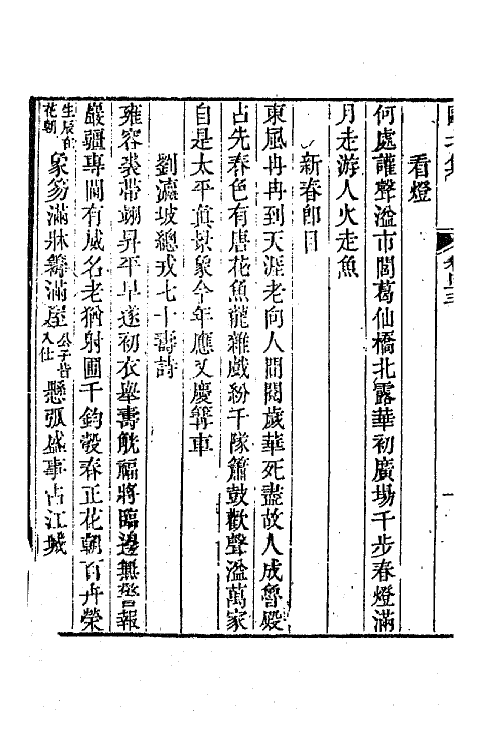 看燈
何處讙聲溢市閭葛仙橋北露華初廣場千步春燈滿
月走游人火走魚
新春即目
東風冉冉到天涯老向人間閱歲華死盡故人成魯殿
占先春色有唐花魚龍雜戲紛千隊簫鼓歡聲溢萬家
自是太平眞景象今年應又慶篝車
劉瀛坡總戎七十壽詩
雍容裘帶翊昇平早遂初衣舉壽觥福將臨邊無警報
巖疆專閫有威名老猶射圃千鈞彀春正花朝百卉榮
生辰在花朝 象笏滿牀籌滿屋 公子皆入仕 懸弧盛事占江城